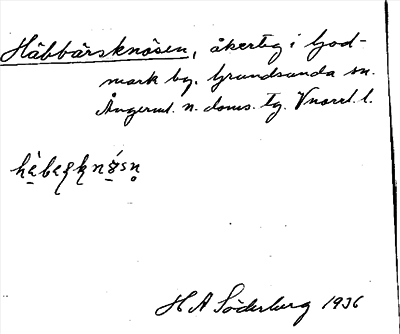 Häbbärsknösen, åkerteg i God-
mark by, Grundsunda sn.
Ångerml. n. doms. tg. Vnorrl. l.
H A Söderberg 1936